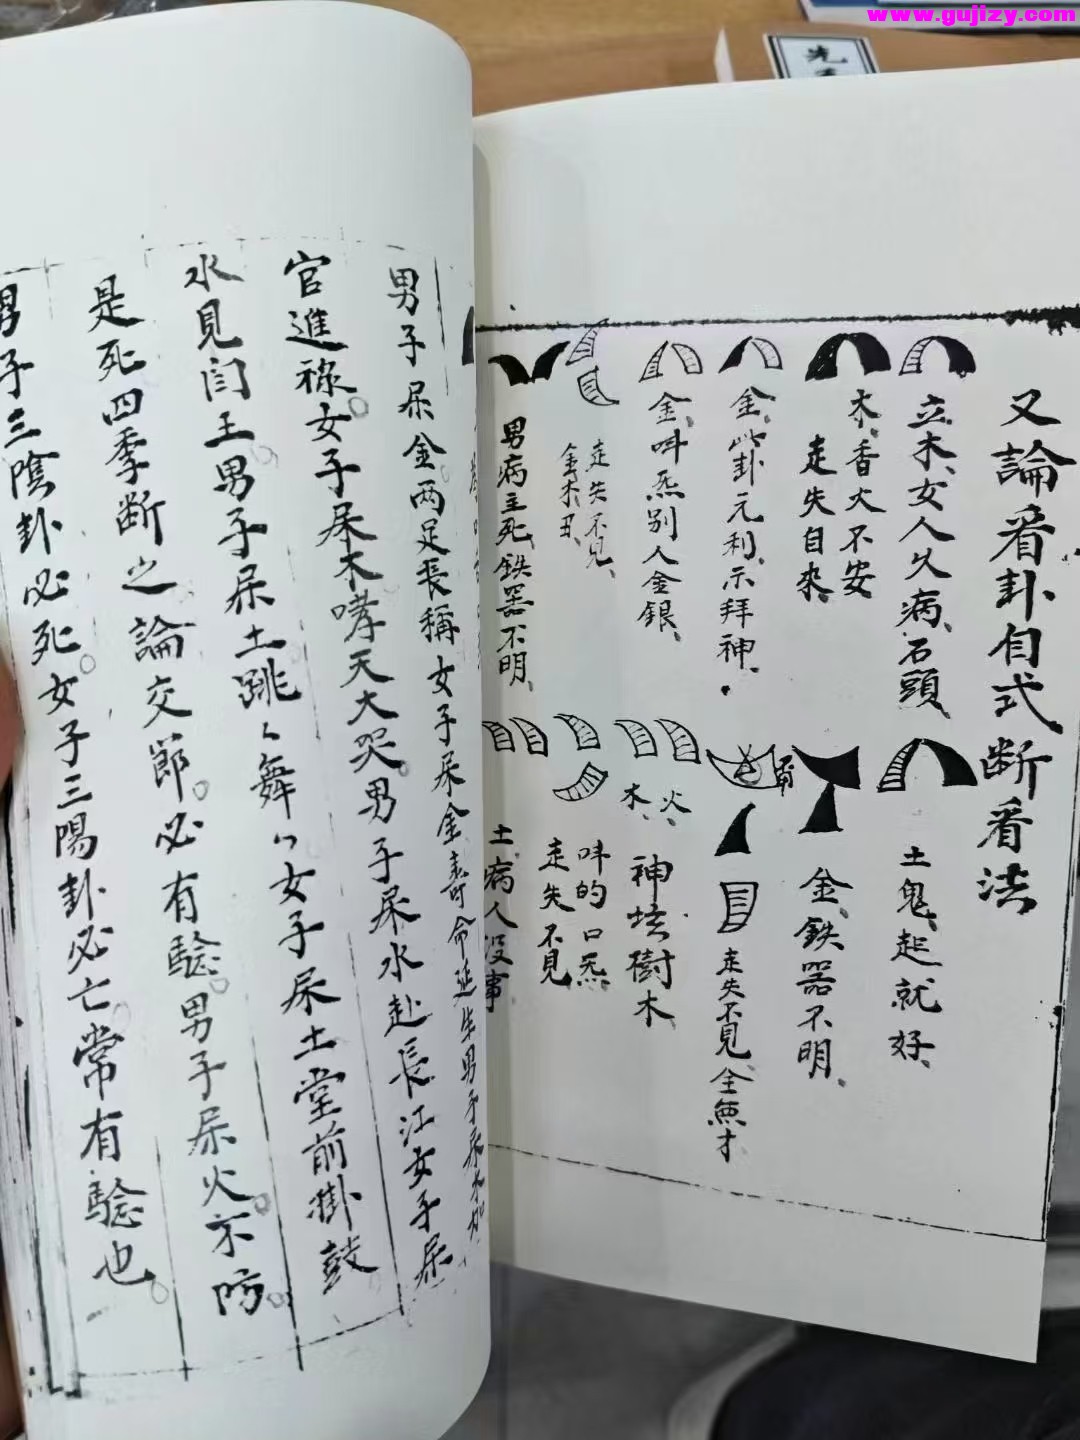 www.gujizy.com
又論看卦自式斷看法
立木、女人久病、石頭、
木、香火不安
走失自來、
金、此卦元利、示拜神、
金、呌炁别人金銀、
走失不見、
金木丑、
男病主死、鉄器不明、
土鬼、起就好、
金、鉄器不明、
走失不見、全無才
火、
木、
神坛樹木、
呌的口炁
走失不見
土病人没事
男子杘金兩足長稱女子杘金壽命延年男子杘木加
官進禄。女子杘木哮天大哭。男子杘水赴長江女子杘
水見闫王男子杘土跳々舞々女子杘土堂前掛鼓
是死四季断之論交節。必有驗。男子杘火不防。
男子三陰卦必死。女子三陽卦必亡。常有驗也。